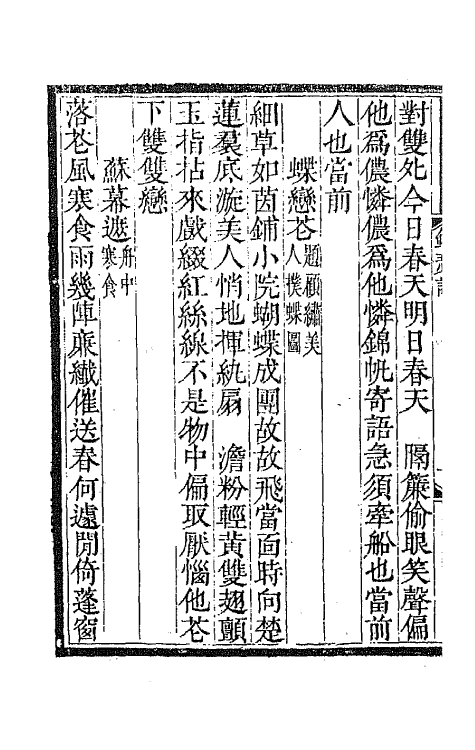 對雙處今日春天明日春天　隔簾偷眼笑聲偏
他爲儂憐儂爲他憐錦帆寄語急須牽船也當前
人也當前
蝶戀花題顧繡美人撲蝶圖
細草如茵鋪小院蝴蝶成團故故飛當面時向楚
蓮羣底漩美人悄地揮紈扇　澹粉輕黃雙翅顫
玉指拈來戲綴紅絲線不是物中偏取厭惱他花
下雙雙戀
蘇幕遮舟中寒食
落花風寒食雨幾陣廉纖催送春何遽閒倚蓬窗